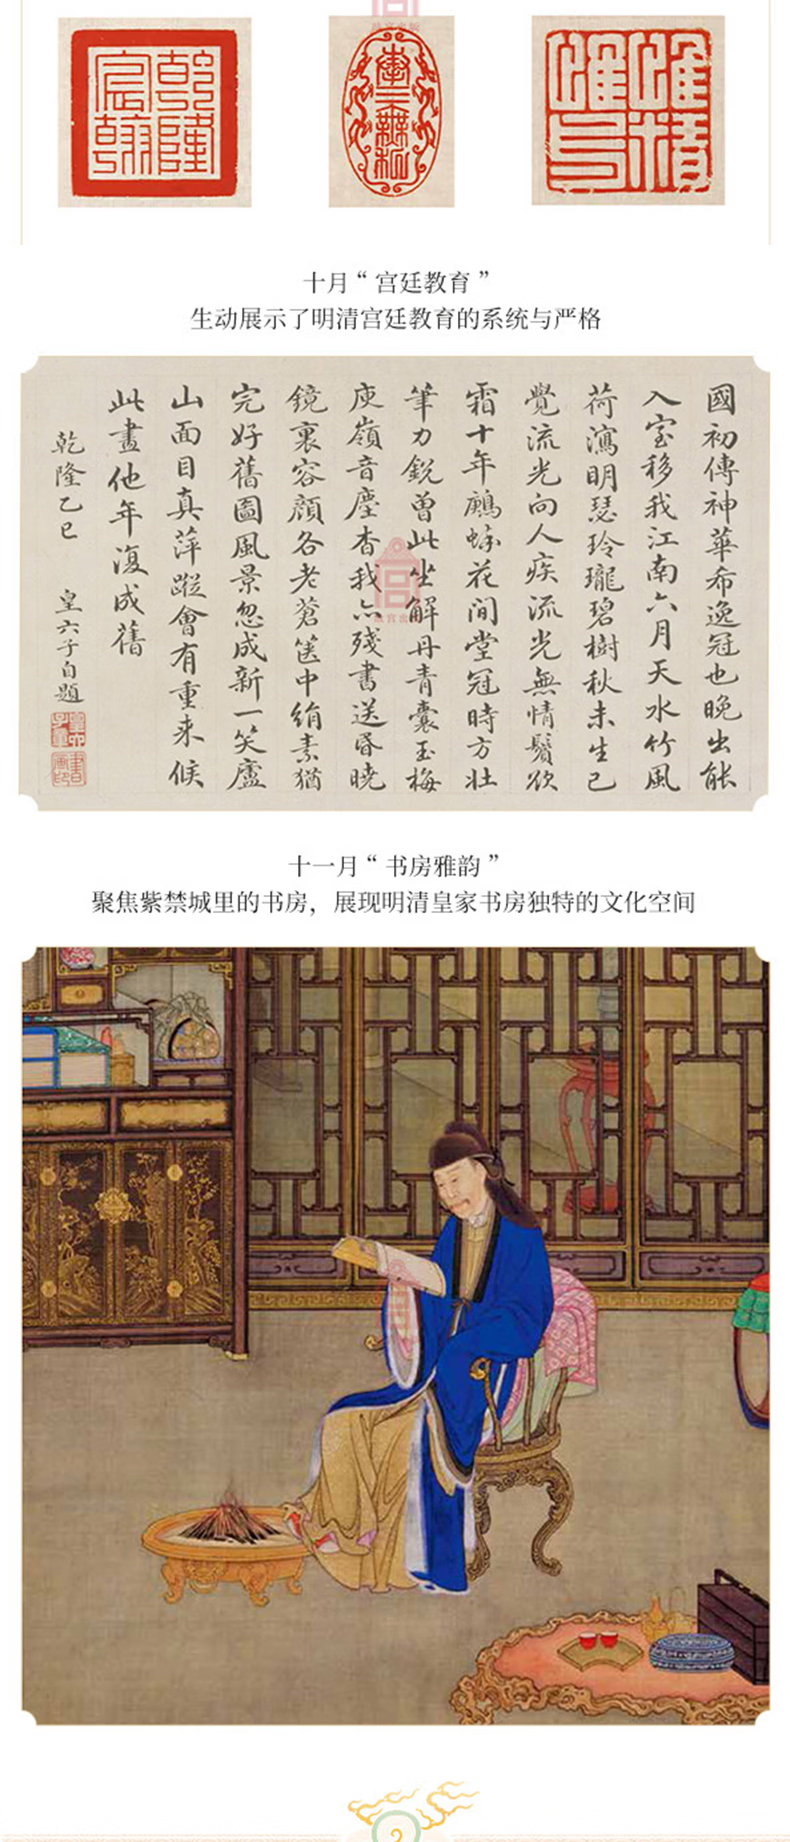 乾隆宸翰
奉三無私
十月“宫廷教育”
生动展示了明清宫廷教育的系统与严格
國初傳神華希逸冠也晚出能
入室移我江南六月天水竹風
荷瀉明瑟玲瓏碧樹秋未生已
覺流光向人疾流光無情鬢欲
霜十年花間堂冠時方壯
筆力銳曾此坐解丹青囊玉梅
庾嶺音塵杳我亦殘書送昏曉
鏡裏容顏各老蒼篋中絹素猶
完好舊圖風景忽成新一笑廬
山面目真萍蹤會有重来候
此畫他年復成舊
乾隆乙巳 皇六子自題
十一月“书房雅韵”
聚焦紫禁城里的书房，展现明清皇家书房独特的文化空间
2